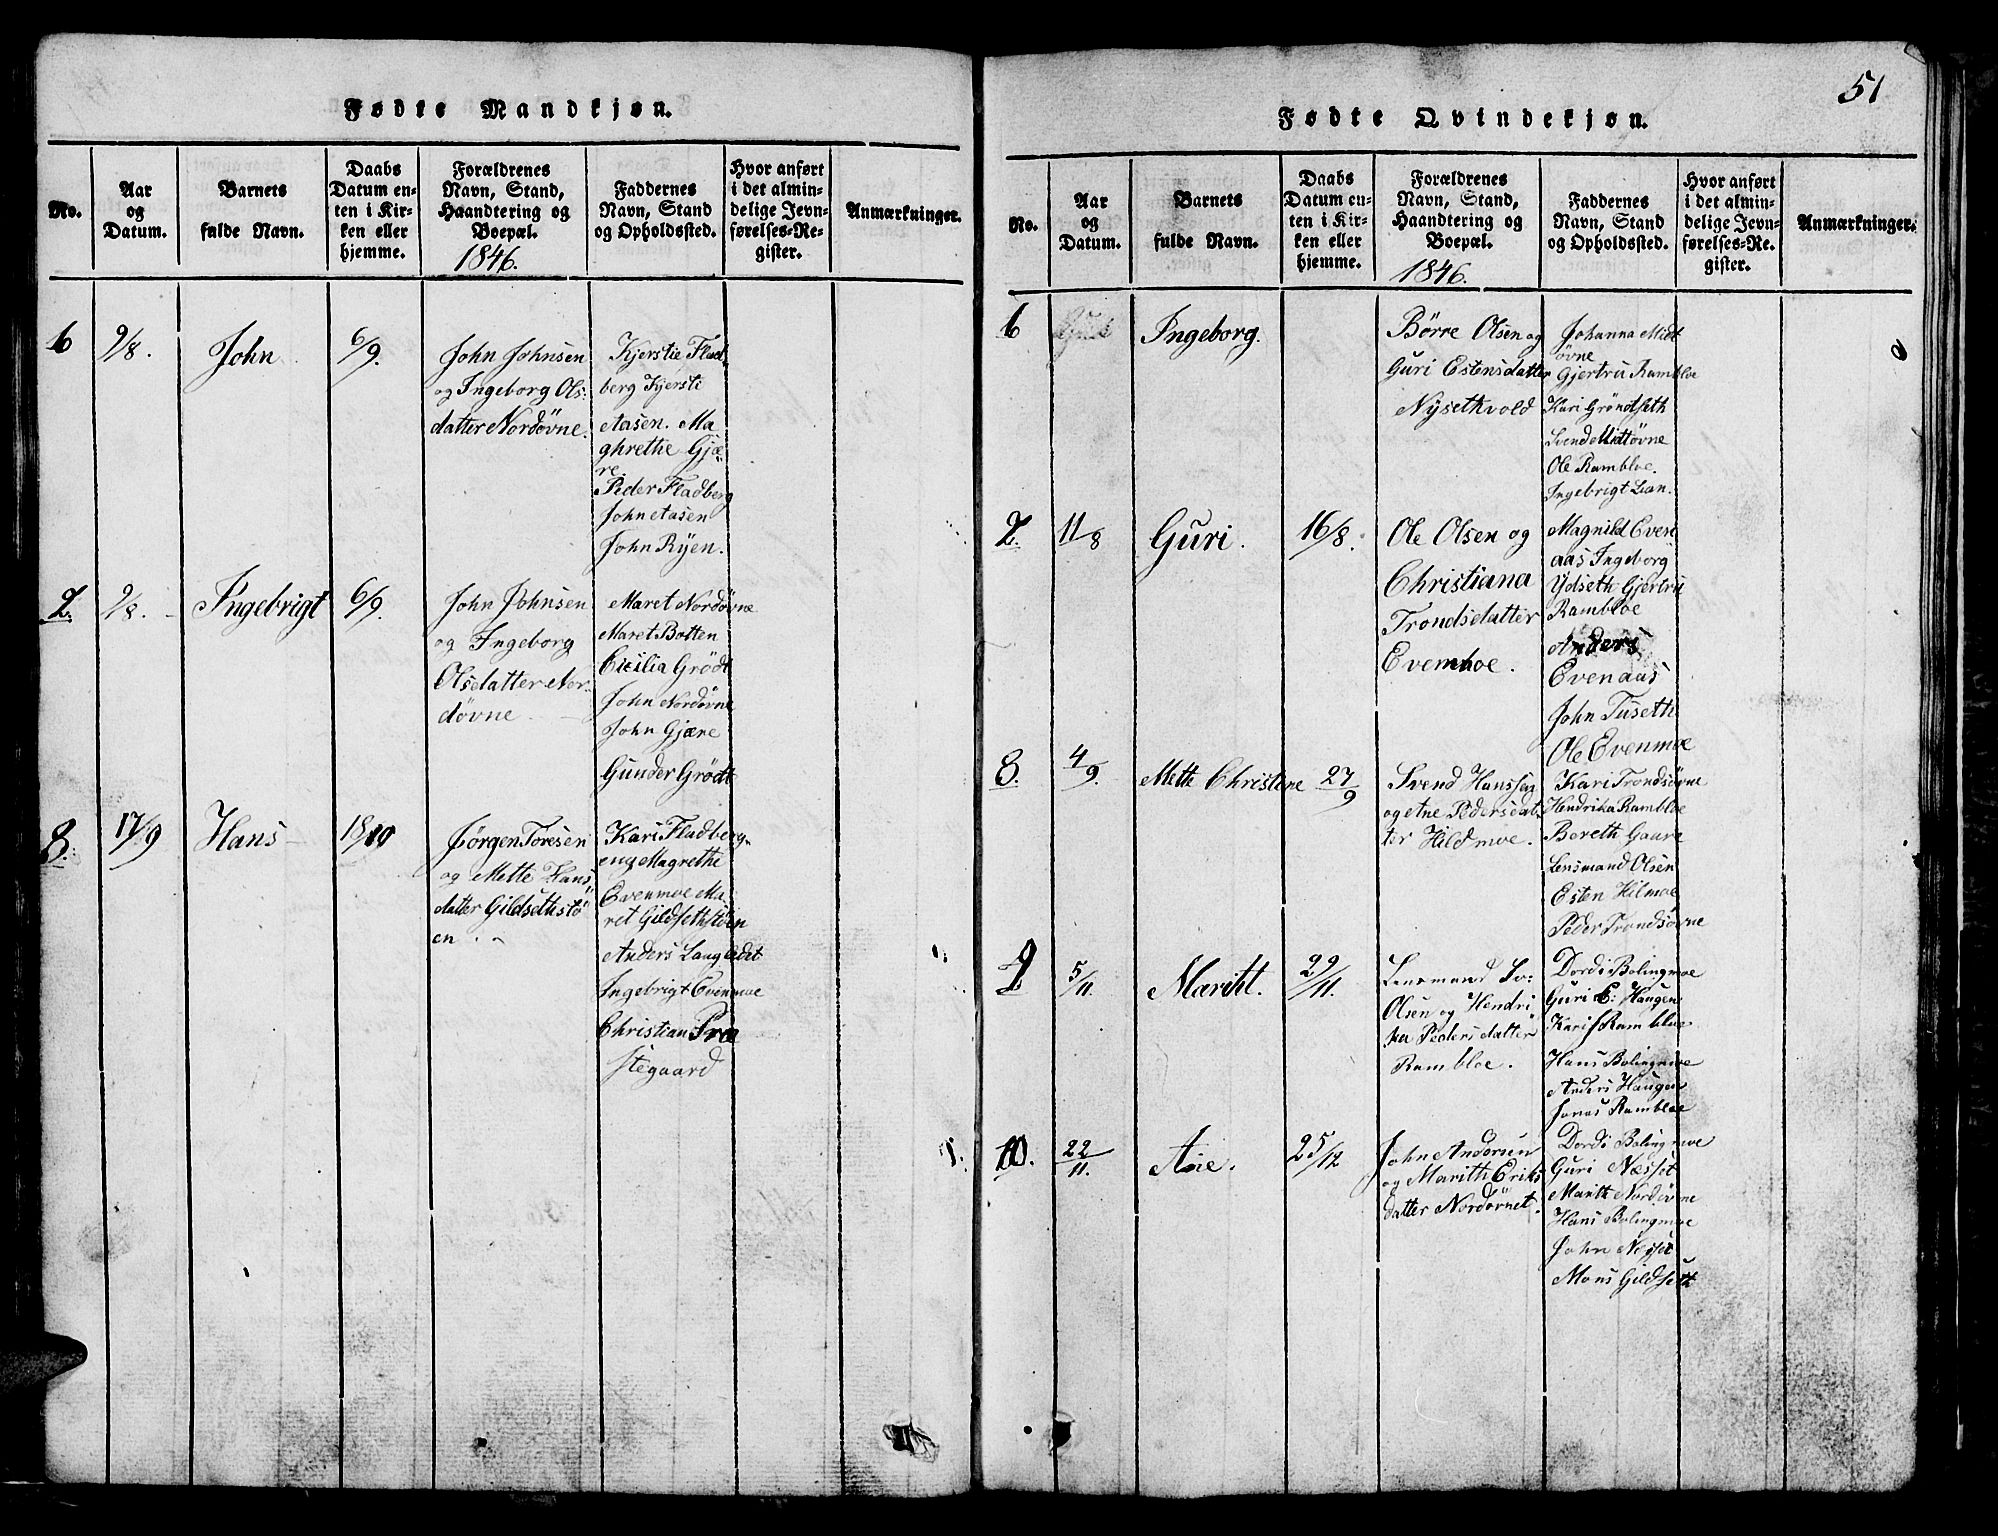 51
Fødte Mandkjøn.
No.
Aar
og
Datum.
Barnets
fulde Navn.
Daabs
Datum en-
ten i Kir-
ken eller
hjemme.
Forældrenes
Navn, Stand,
Haandtering og
Boepæl.
1846.
Faddernes
Navn, Stand
og Opholdssted.
Hvor anført
i det almin-
delige Jevn-
førelses-Re-
gister.
Anmærkninger.
6
9/8.
John
6/9.
John Johnsen
og Ingeborg Ols:
datter Nordøvne.
Kjerstie Flad-
berg Kjersti
Aasen. Ma
ghrethe Gjæ
re.
Peder Fladberg
John Aasen
John Ryen.
7.
9/8.
Ingebrigt
6/9.
John Johnsen
og Ingeborg
Olsdatter Nor-
døvne
Maret Nordøvne
Maret Botten
Cicilia Grödt
John Nordøvne
John Gjære
Gunder Grödt
8.
17/9
Hans
18/10
Jörgen Toresen
og Mette Hans
datter Gildsethstö
en.
Kari Fladberg-
eng Magrethe
Evenmoe Ma-
ret Gildsethstöen
Anders Langledet
Ingebrigt Evenmoe
Christian Præ
stegaard
Fødte Qvindekjøn.
No.
Aar
og
Datum.
Barnets
fulde Navn.
Daabs
Datum en-
ten i Kir-
ken eller
hjemme.
Forældrenes
Navn, Stand,
Haandtering og
Boepæl.
1846.
Faddernes
Navn, Stand
og Opholdsted.
Hvor anført
i det almin-
delige Jevn-
førelses-Re-
gister.
Anmærkninger.
6
Ingeborg.
Börre Olsen og
Guri Estensdatter
Nysethvold
Johanna Midt
øvne
Gjertru Rambloe
Kari Gröndtseth
Svend Midtøvne
Ole Rambloe.
Ingebrigt Lian.
7.
11/8
Guri.
16/8.
Ole Olsen og
Christiana
Trondsdatter
Evenmoe.
Magnild Even
aas Ingeborg
Ydseth Gjertru
Rambloe
Anders
Evenaas
John Tuseth
Ole Evenmoe
8.
4/9.
Mette Christine
27/9
Svend Hanssen
og Ane Pedersdat
ter Hildmoe.
Kari Trondsøvne
Hendrika Rambloe
Bereth Gaure
Lensmand Olsen
Esten Hilmoe
Peder Trondsøvne
9
5/11.
Maritt.
29/11.
Lensmand Sv:
Olsen og Hendri
ka Pedersdatter
Rambloe.
Dordi Bolingmoe
Guri E: Haugen
Kari Rambloe
Hans Bolingmoe
Anders Haugen
Jonas Rambloe
10.
22/11.
Ane.
25/12
John Andersen
og Marith Eriks
datter Nordøvnet.
Dordi Bolingmoe
Guri Næsset
Marith Nordøvne
Hans Bolingmoe
John Næsset
Mons Gildseth